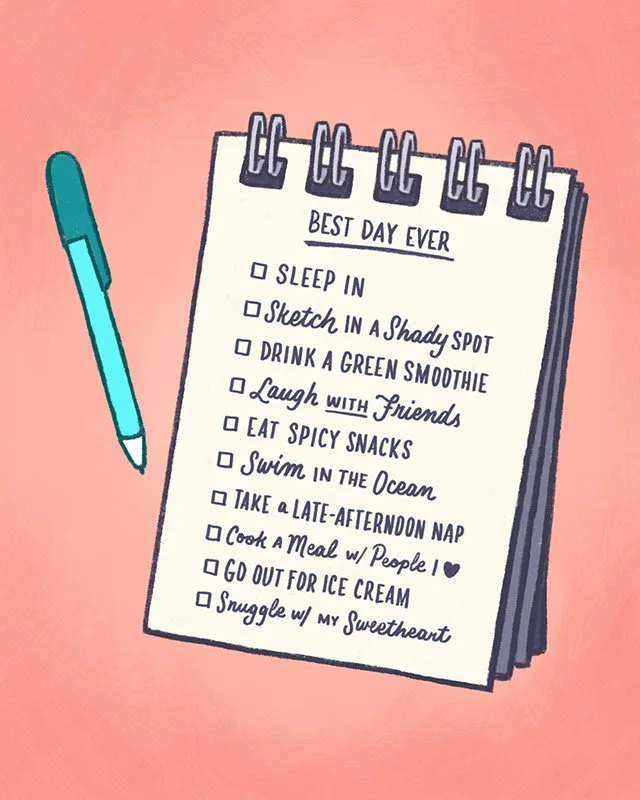 BEST DAY EVER
☐ SLEEP IN
☐ Sketch IN A Shady SPOT
☐ DRINK A GREEN SMOOTHIE
☐ Laugh WITH Friends
☐ EAT SPICY SNACKS
☐ Swim IN THE Ocean
☐ TAKE a LATE-AFTERNOON NAP
☐ Cook A Meal w/ People I ♥
☐ GO OUT FOR ICE CREAM
☐ Snuggle w/ MY Sweetheart